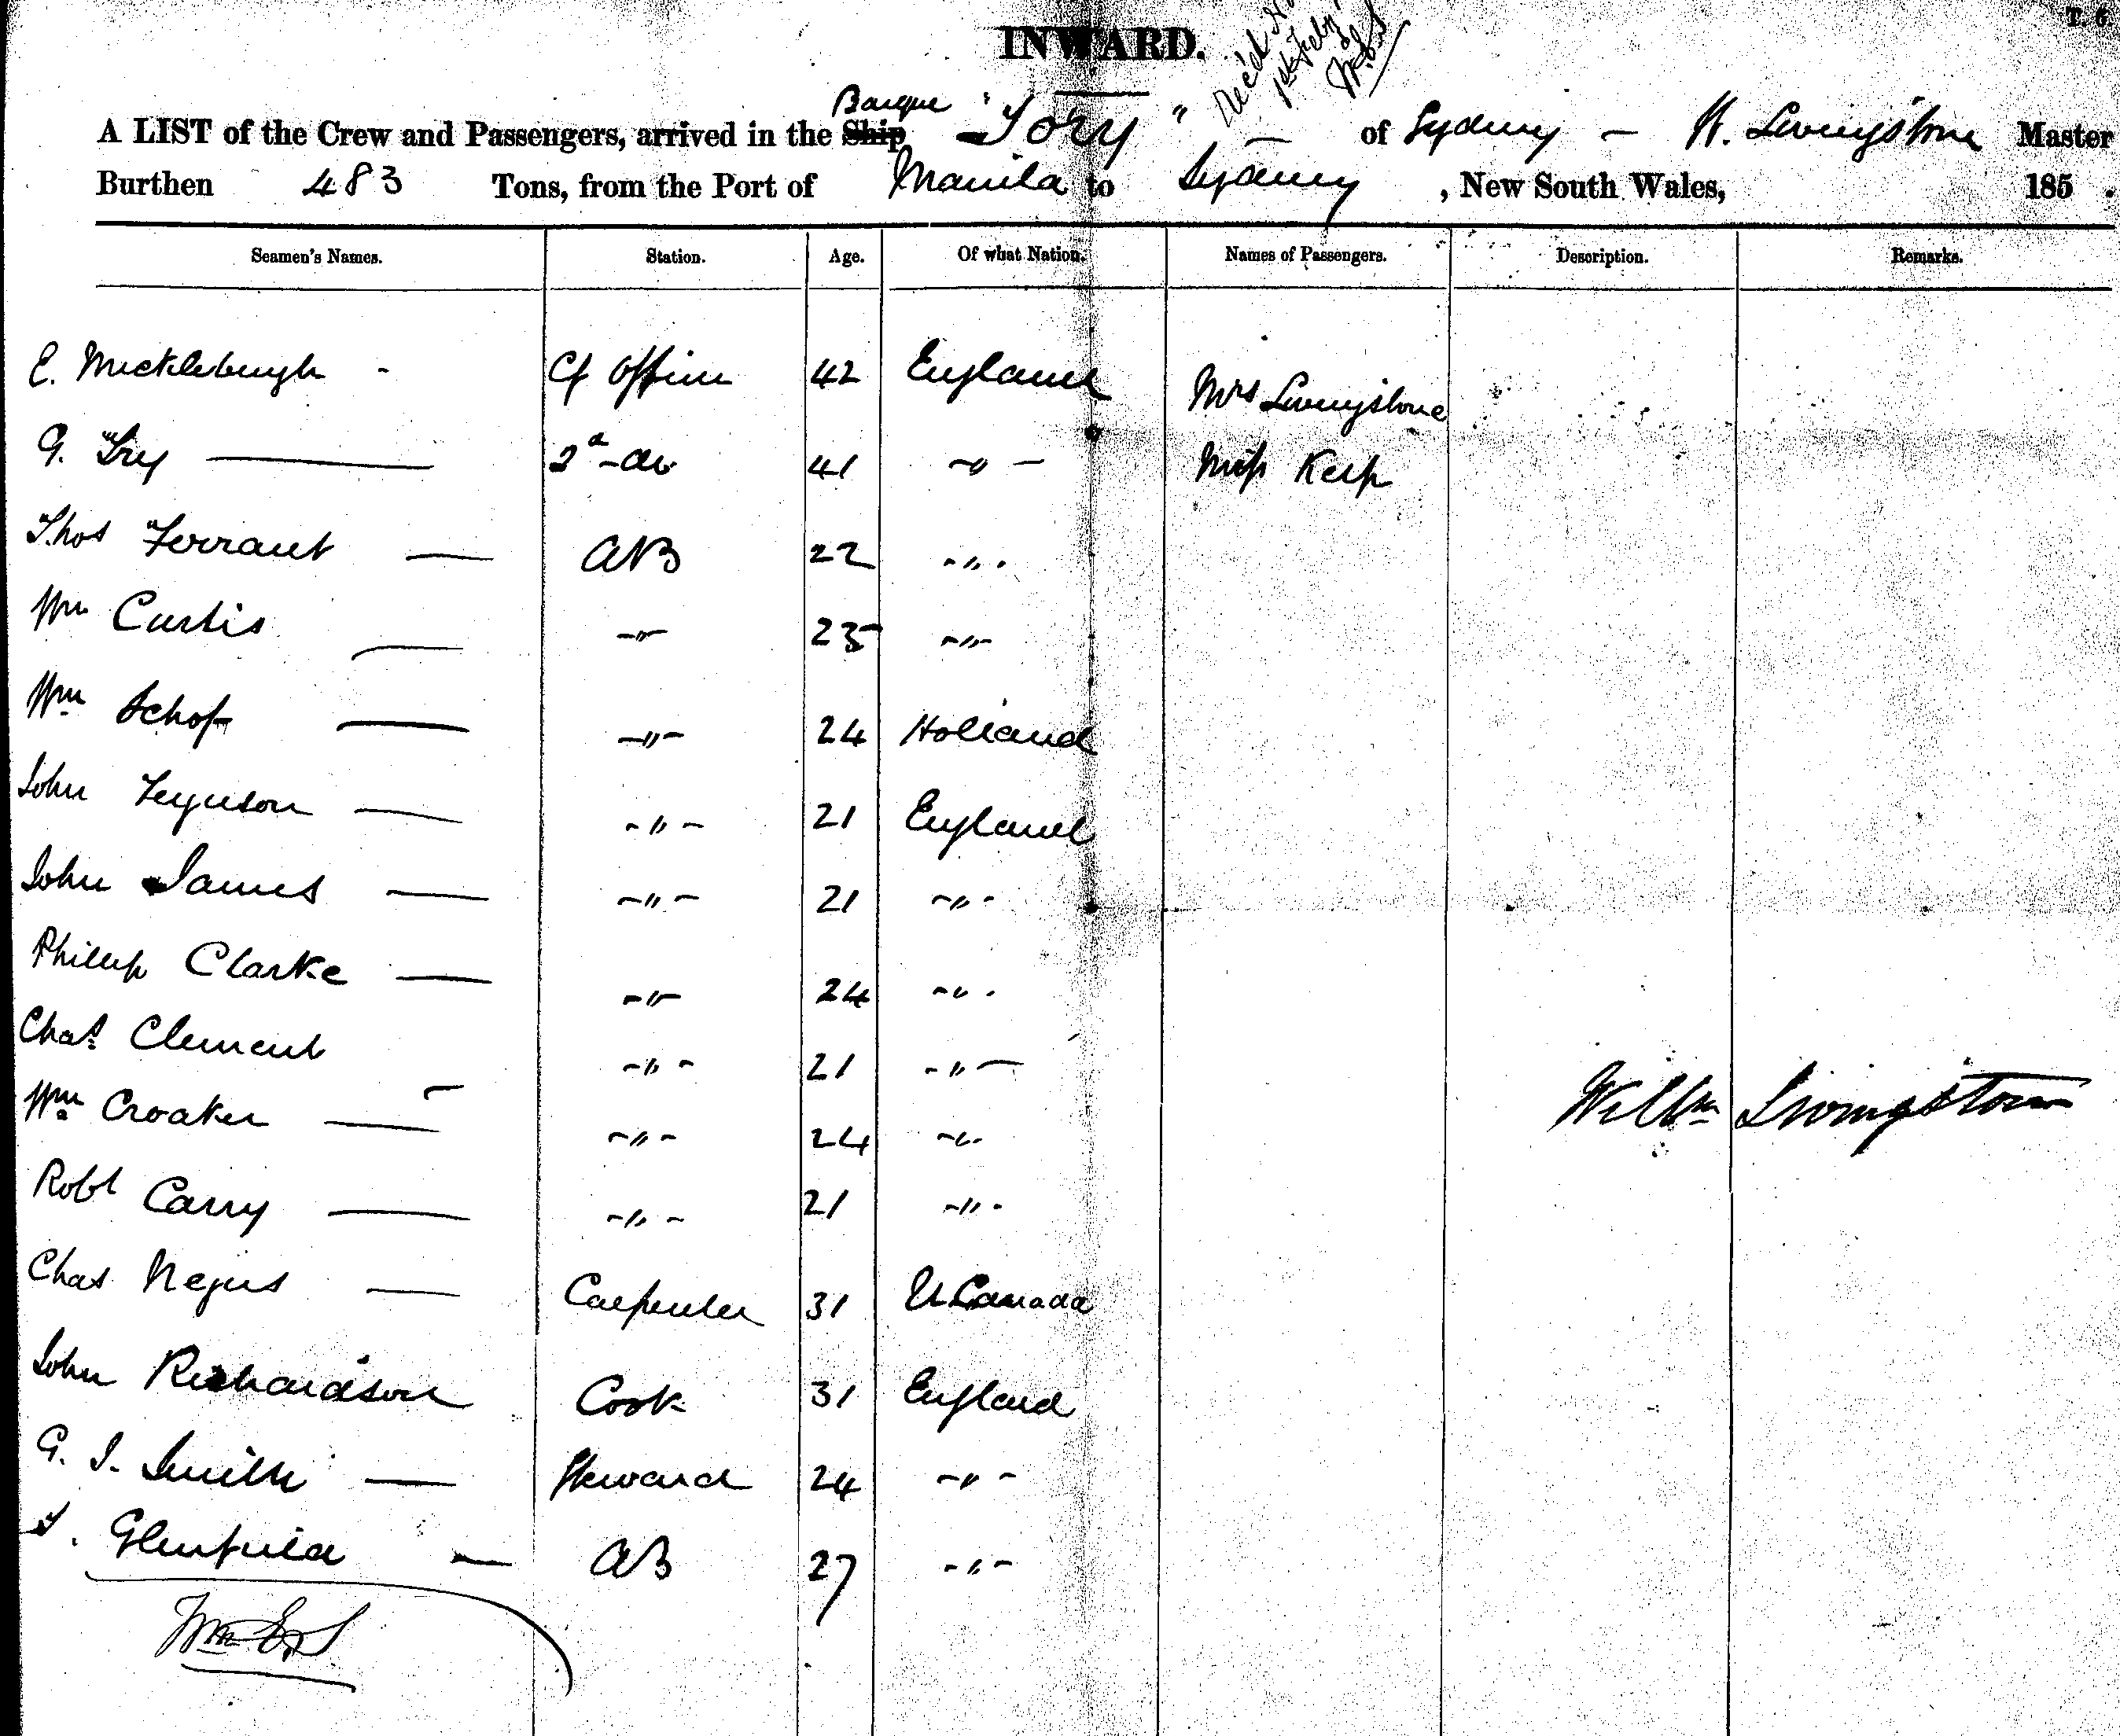 T. 6.
INWARD.
Barque
A LIST of the Crew and Passengers, arrived in the Ship "Tory" of Sydney – W. Livingstone Master
Burthen 483 Tons, from the Port of Manila to Sydney, New South Wales, 185 .
Seamen's Names. Station. Age. Of what Nation. Names of Passengers. Description. Remarks.
E. Micklebugh - Cf Officer 42 England Mrs Livingstone
G. Fry — 2d - do 41 - " - Miss
Thos Ferrant — AB 22 - " -
Wm Curtis — - " - 25 - " -
Wm Schof — - " - 24 Holland
John Ferguson — - " - 21 England
John James — - " - 21 - " -
Phillip Clarke — - " - 24 - " -
Chas. Clement - " - 21 - " -
Willm Livingston
Wm Croaker — - " - 24 - " -
Robt Carry — - " - 21 - " -
Chas Negus — Carpenter 31 U Canada
John Richardson Cook 31 England
G. J. Smith — Steward 24 - " -
T. Glenfield — AB 27 - " -